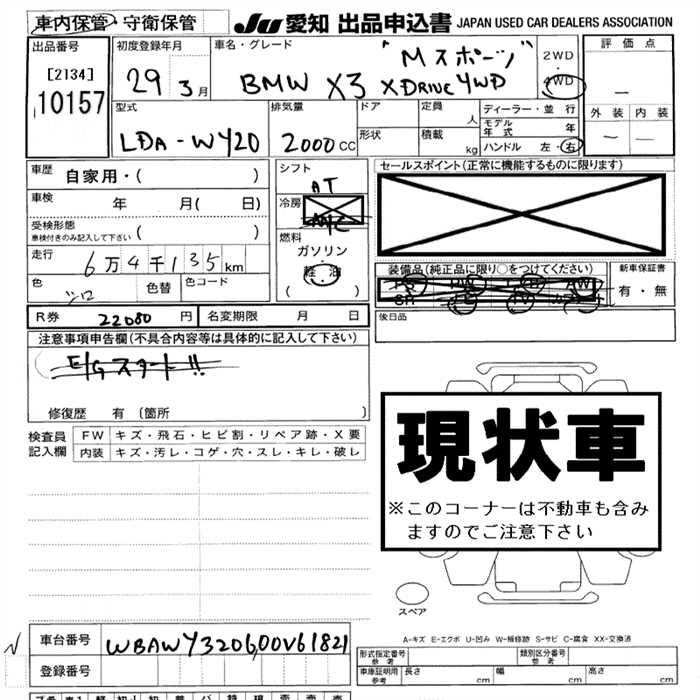 車内保管・守衛保管
JU 愛知 出品申込書 JAPAN USED CAR DEALERS ASSOCIATION
出品番号
[2134]
10157
初度登録年月
29 3月
車名・グレード
"Mスポーツ"
BMW X3 XDRIVE 4WD
2WD
・
4WD
評価点
—
外装 内装
— —
型式
LDA-WY20
排気量
2000 CC
ドア
形状
定員 人
積載 kg
ディーラー・並行
モデル年式 年
ハンドル 左・右
車歴 自家用・( )
車検 年 月( 日)
受検形態
車検付きのみ記入して下さい ( )
走行
6万4千135km
色 シロ
色替
色コード
シフト
AT
冷房
AAC
燃料
ガソリン
軽・油
( )
セールスポイント(正常に機能するものに限ります)
装備品(純正品に限り○をつけてください)
PS PW AW
SR TV
新車保証書
有・無
後日品
R券 22080 円
名変期限 月 日
注意事項申告欄(不具合内容等は具体的に記入して下さい)
E/Gスタート!!
修復歴 有 (箇所 )
検査員記入欄
FW キズ・飛石・ヒビ割・リペア跡・X要
内装 キズ・汚レ・コゲ・穴・スレ・キレ・破レ
現状車
※このコーナーは不動車も含み
ますのでご注意下さい
スペア
A-キズ E-エクボ U-凹み W-補修跡 S-サビ C-腐食 XX-交換済
車台番号 WBAWY320600V61821
登録番号
形式指定番号
参考
類別区分番号
参考
車庫証明用
参考
長さ cm
幅 cm
高さ cm